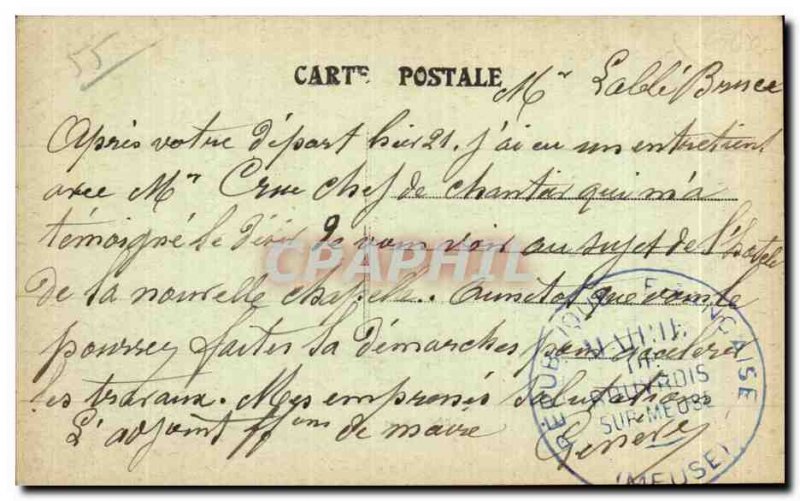 55
CARTE POSTALE
Mr L'abbé Bruce
Après votre départ hier 21. j'ai eu un entretient
avec Mr Crue chef de chantier qui m'a
témoigné le désir de vous voir au sujet de
de la nouvelle chapelle. Aussitot que vous le
pourrez faites la démarches pour
les travaux. Mes empressés salutations
L'adjoint ffons de maire
REPUBLIQUE FRANÇAISE
MAIRIE
DE
SUR-MEUSE
(MEUSE)
CPAPHIL